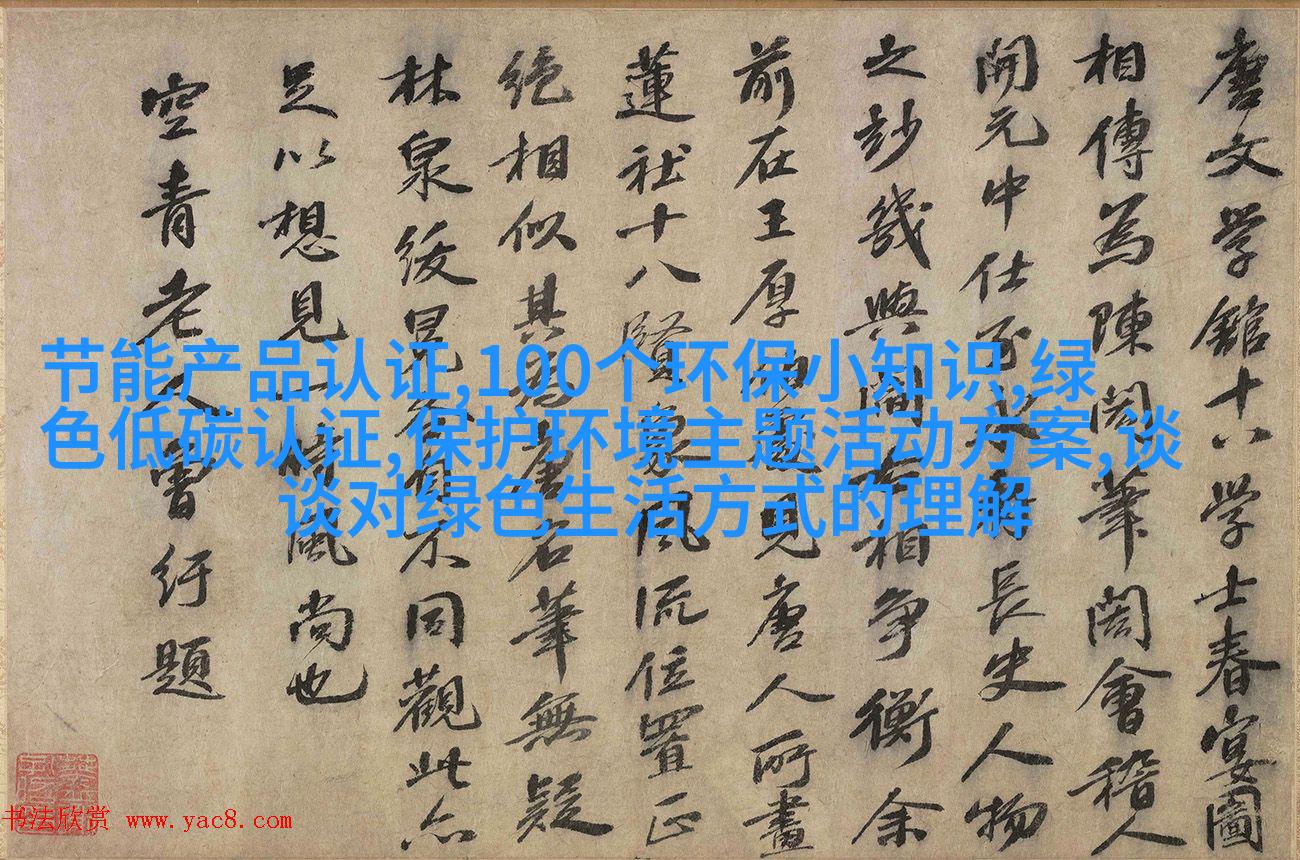 唐文学館十八学士春宴圖
相傳為陳閎筆閎會稽人
開元中仕至永王府長史人物
之妙幾與閻右相爭衡余
前在王厚見唐人所畫
蓮社十八賢象風流位置正
絶相似其為唐名筆無疑
林泉綬冕各自不同觀此亦
足以想見一時風尚也
空青老人曾紆題
节能产品认证,100个环保小知识,绿
色低碳认证,保护环境主题活动方案,谈
谈对绿色生活方式的理解
书法欣赏 www.yac8.com